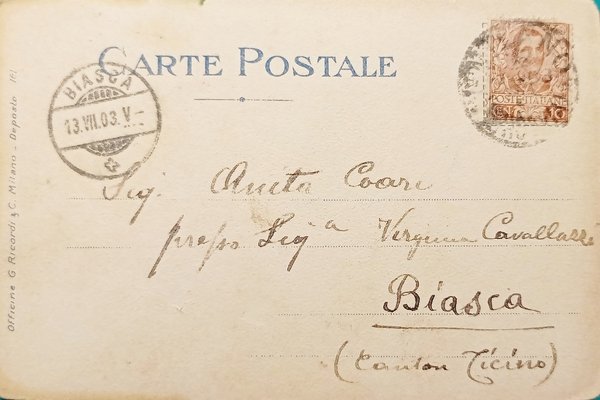 CARTE POSTALE
BIASCA
13.VII.03.V
POSTE ITALIANE
CENT. 10
Sig. Anita Coari
presso Sigª Virginia Cavallazzi
Biasca
(Canton Ticino)
Officine G. Ricordi & C. Milano - Deposto (E)